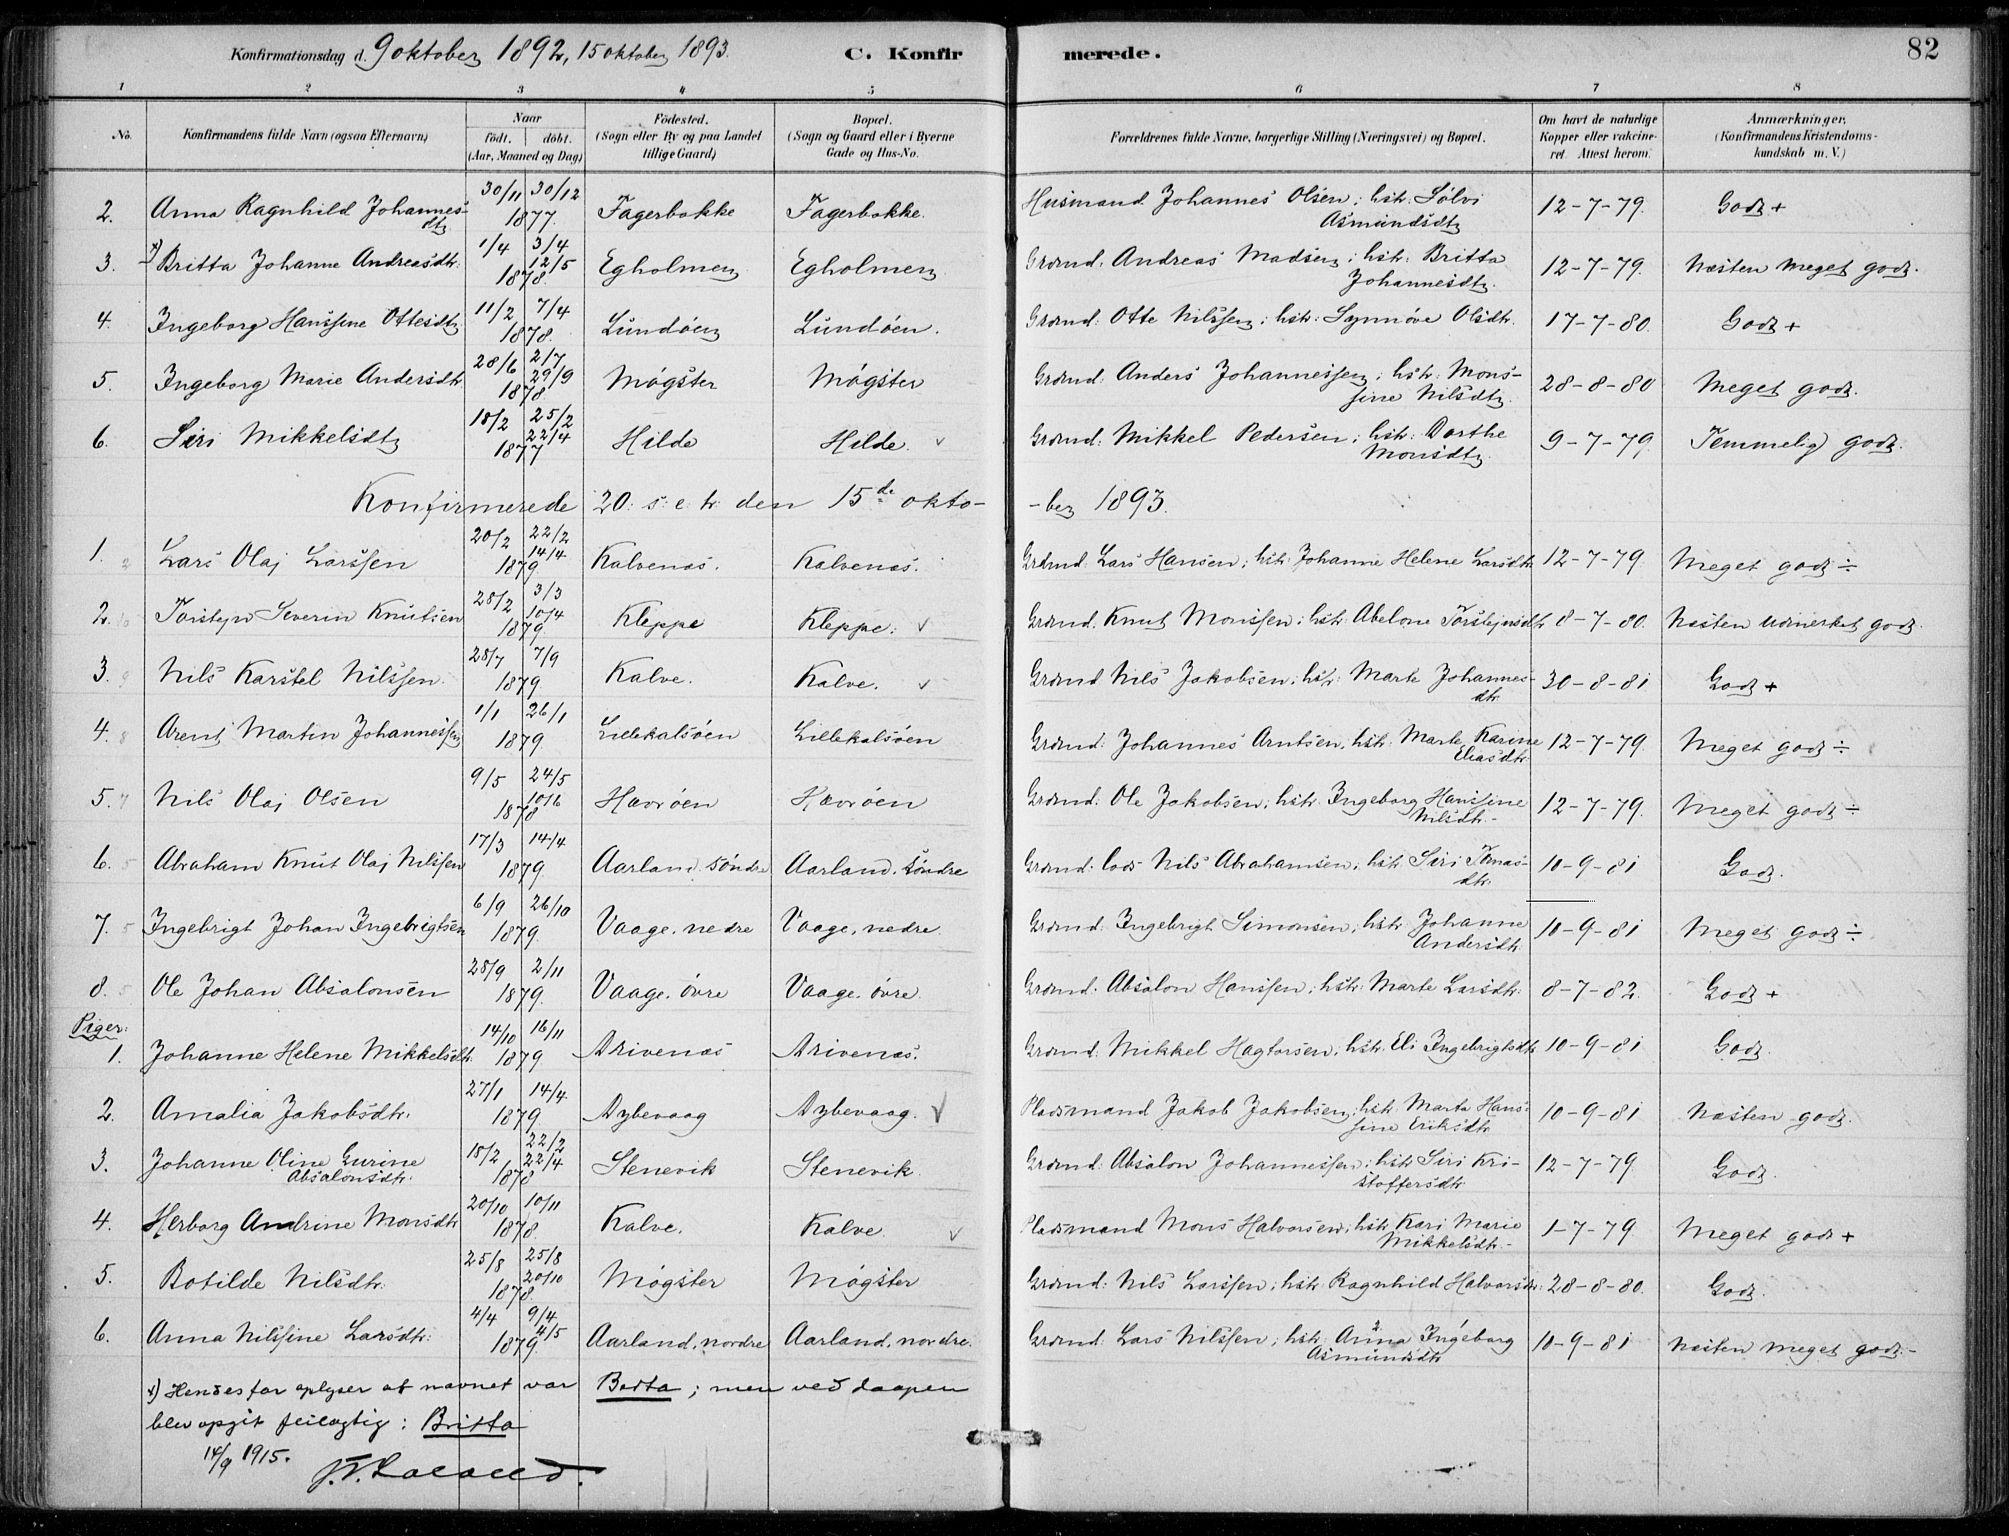 Konfirmationsdag d. 9 oktober 1892, 15 oktober 1893. C. Konfirmerede. 82
1 2 3 4 5 6 7 8
No. Konfirmandens fulde Navn (ogsaa Efternavn) Naar født. døbt. (Aar, Maaned og Dag) Födested. (Sogn eller By og paa Landet tillige Gaard) Bopæl. (Sogn og Gaard eller i Byerne Gade og Hus-No. Forældrenes fulde Navne, borgerlige Stilling (Næringsvei) og Bopæl. Om havt de naturlige Kopper eller vakcineret. Attest herom. Anmærkninger. (Konfirmandens Kristendomskundskab m. V.)
2. Anna Ragnhild Johannesdtr 30/11 30/12 1877. Fagerbakke Fagerbakke. Husmand Johannes Olsen; hstr: Sølvi Asmundsdtr 12-7-79. Godt +
3. x) Britta Johanne Andreasdtr. 1/4 3/4 12/5 1878. Egholmen Egholmen Grdmd. Andreas Madsen; hstr: Britta Johannesdtr. 12-7-79. Næsten meget godt.
4. Ingeborg Hanssine Ottesdtr 11/2 7/4 1878. Lundøen Lundøen. Grdmd: Otte Nilssen; hstr: Synnøve Olsdtr. 17-7-80. Godt +
5. Ingeborg Marie Andersdtr. 28/6 2/7 29/9 1878 Møgster Møgster Grdmd: Anders Johannessen; hstr: Monssine Nilsdtr. 28-8-80 Meget godt.
6. Siri Mikkelsdtr 18/2 25/2 22/4 1877 Hilde Hilde. Grdmd: Mikkel Pedersen; hstr: Dorthe Monsdtr. 9-7-79. Temmelig godt.
Konfirmerede 20. s. e. tr. den 15de oktober 1893.
1. Lars Olaj Larssen 20/2 22/2 14/4 1879 Kalvenæs. Kalvenæs. Grdmd. Lars Hansen; hstr: Johanne Helene Larsdtr 12-7-79. Meget godt ÷
2. Torstejn Severin Knutsen 28/2 3/3 10/4 1879 Kleppe Kleppe. Grdmd. Knut Monssen; hstr: Abelone Torstejnsdtr 8-7-80. Næsten udmerket godt.
3. Nils Karstel Nilssen. 28/7 7/9 1879 Kalve. Kalve. Grdmd Nils Jakobsen; hstr: Marte Johannesdtr. 30-8-81 Godt +
4. Arent Martin Johannessen 1/1 26/1 1879. Lillekalsøen Lillekalsøen Grdmd: Johannes Arntsen, hstr: Marte Karine Eliasdtr. 12-7-79. Meget godt ÷
5. Nils Olaj Olsen 9/5 24/5 10/6 1878 Hævrøen Hævrøen Grdmd: Ole Jakobsen; hstr. Ingeborg Hanssine Nilsdtr. 12-7-79. Meget godt ÷
6. Abraham Knut Olaj Nilssen 17/3 14/4 1879. Aarland. søndre Aarland. søndre Grdmd: lods Nils Abrahamsen; hstr Siri Tomasdtr. 10-9-81 Godt.
7. Ingebrigt Johan Ingebrigtsen 6/9 26/10 1879. Vaage. nedre Vaage. nedre Grdmd: Ingebrigt Simonsen; hstr Johanne Andersdtr. 10-9-81 Meget godt ÷
8. Ole Johan Absalonsen 28/9 2/11 1879. Vaage. øvre Vaage. øvre. Grdmd: Absalon Hanssen; hstr: Marte Larsdtr. 8-7-82. Godt +
Piger:
1. Johanne Helene Mikkelsdtr. 14/10 16/11 1879 Drivenæs Drivenæs. Grdmd: Mikkel Hagtorsen; hstr. Eli Ingebrigtsdtr 10-9-81 Godt.
2. Amalia Jakobsdtr. 27/1 14/4 1879. Dybevaag Dybevaag. Pladsmand Jakob Jakobsen; hstr: Marta Hanssine Eriksdtr 10-9-81 Næsten godt.
3. Johanne Oline Gurine Absalonsdtr. 18/2 22/2 22/4 1878 Stenevik Stenevik Grdmd: Absalon Johannessen; hstr Siri Kristoffersdtr 12-7-79. Godt.
4. Herborg Andrine Monsdtr 20/10 10/11 1878. Kalve. Kalve. Pladsmand Mons Halvorsen; hstr Kari Marie Mikkelsdtr. 1-7-79. Meget godt +
5. Botilde Nilsdtr. 25/8 25/8 20/10 1878. Møgster Møgster Grdmd: Nils Larssen; hstr: Ragnhild Halvorsdtr. 28-8-80. Godt.
6. Anna Nilssine Larsdtr. 4/4 9/4 4/5 1879. Aarland. nordre Aarland. nordre. Grdmd: Lars Nilssen; hstr: Anna Ingeborg Asmundsdtr 10-9-81 Næsten meget godt.
x) Hendes far oplyser at navnet var Berta; men ved daapen
blev opgit feilagtig: Britta
14/9 1915.